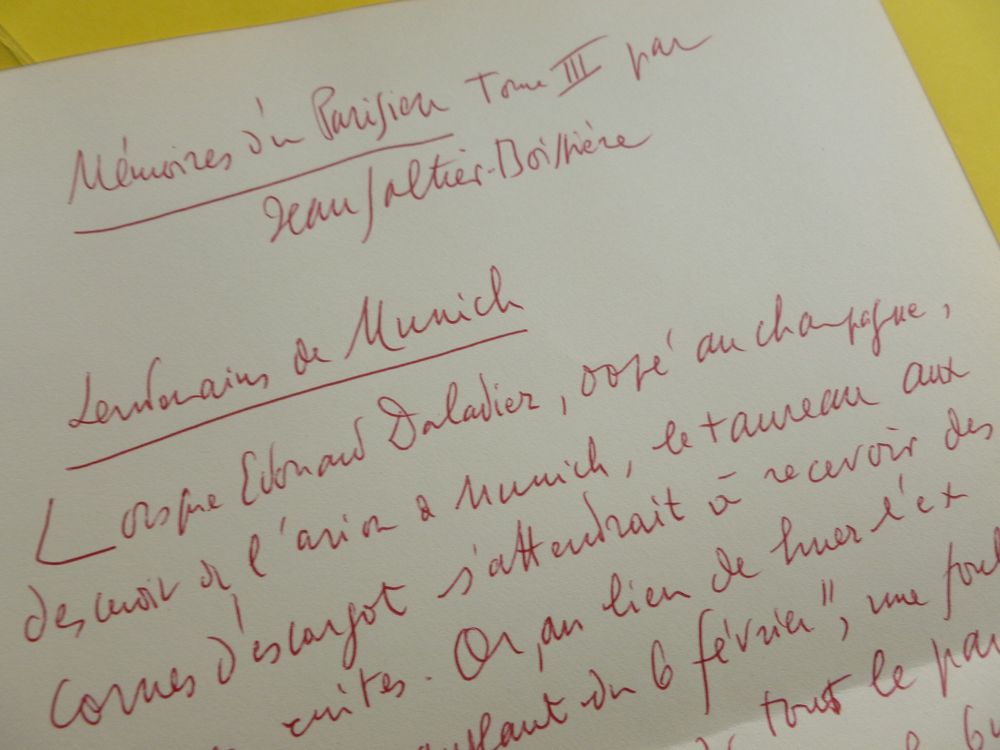 Mémoires d'un Parisien Tome III par
Jean Galtier-Boissière
Lendemains de Munich
Lorsque Edouard Daladier, dopé au champagne,
descendit de l'avion à Munich, le taureau aux
cornes d'escargot s'attendrait à recevoir des
cuites. Or, au lieu de huer l'ex
du 6 février", une foul
tout le par